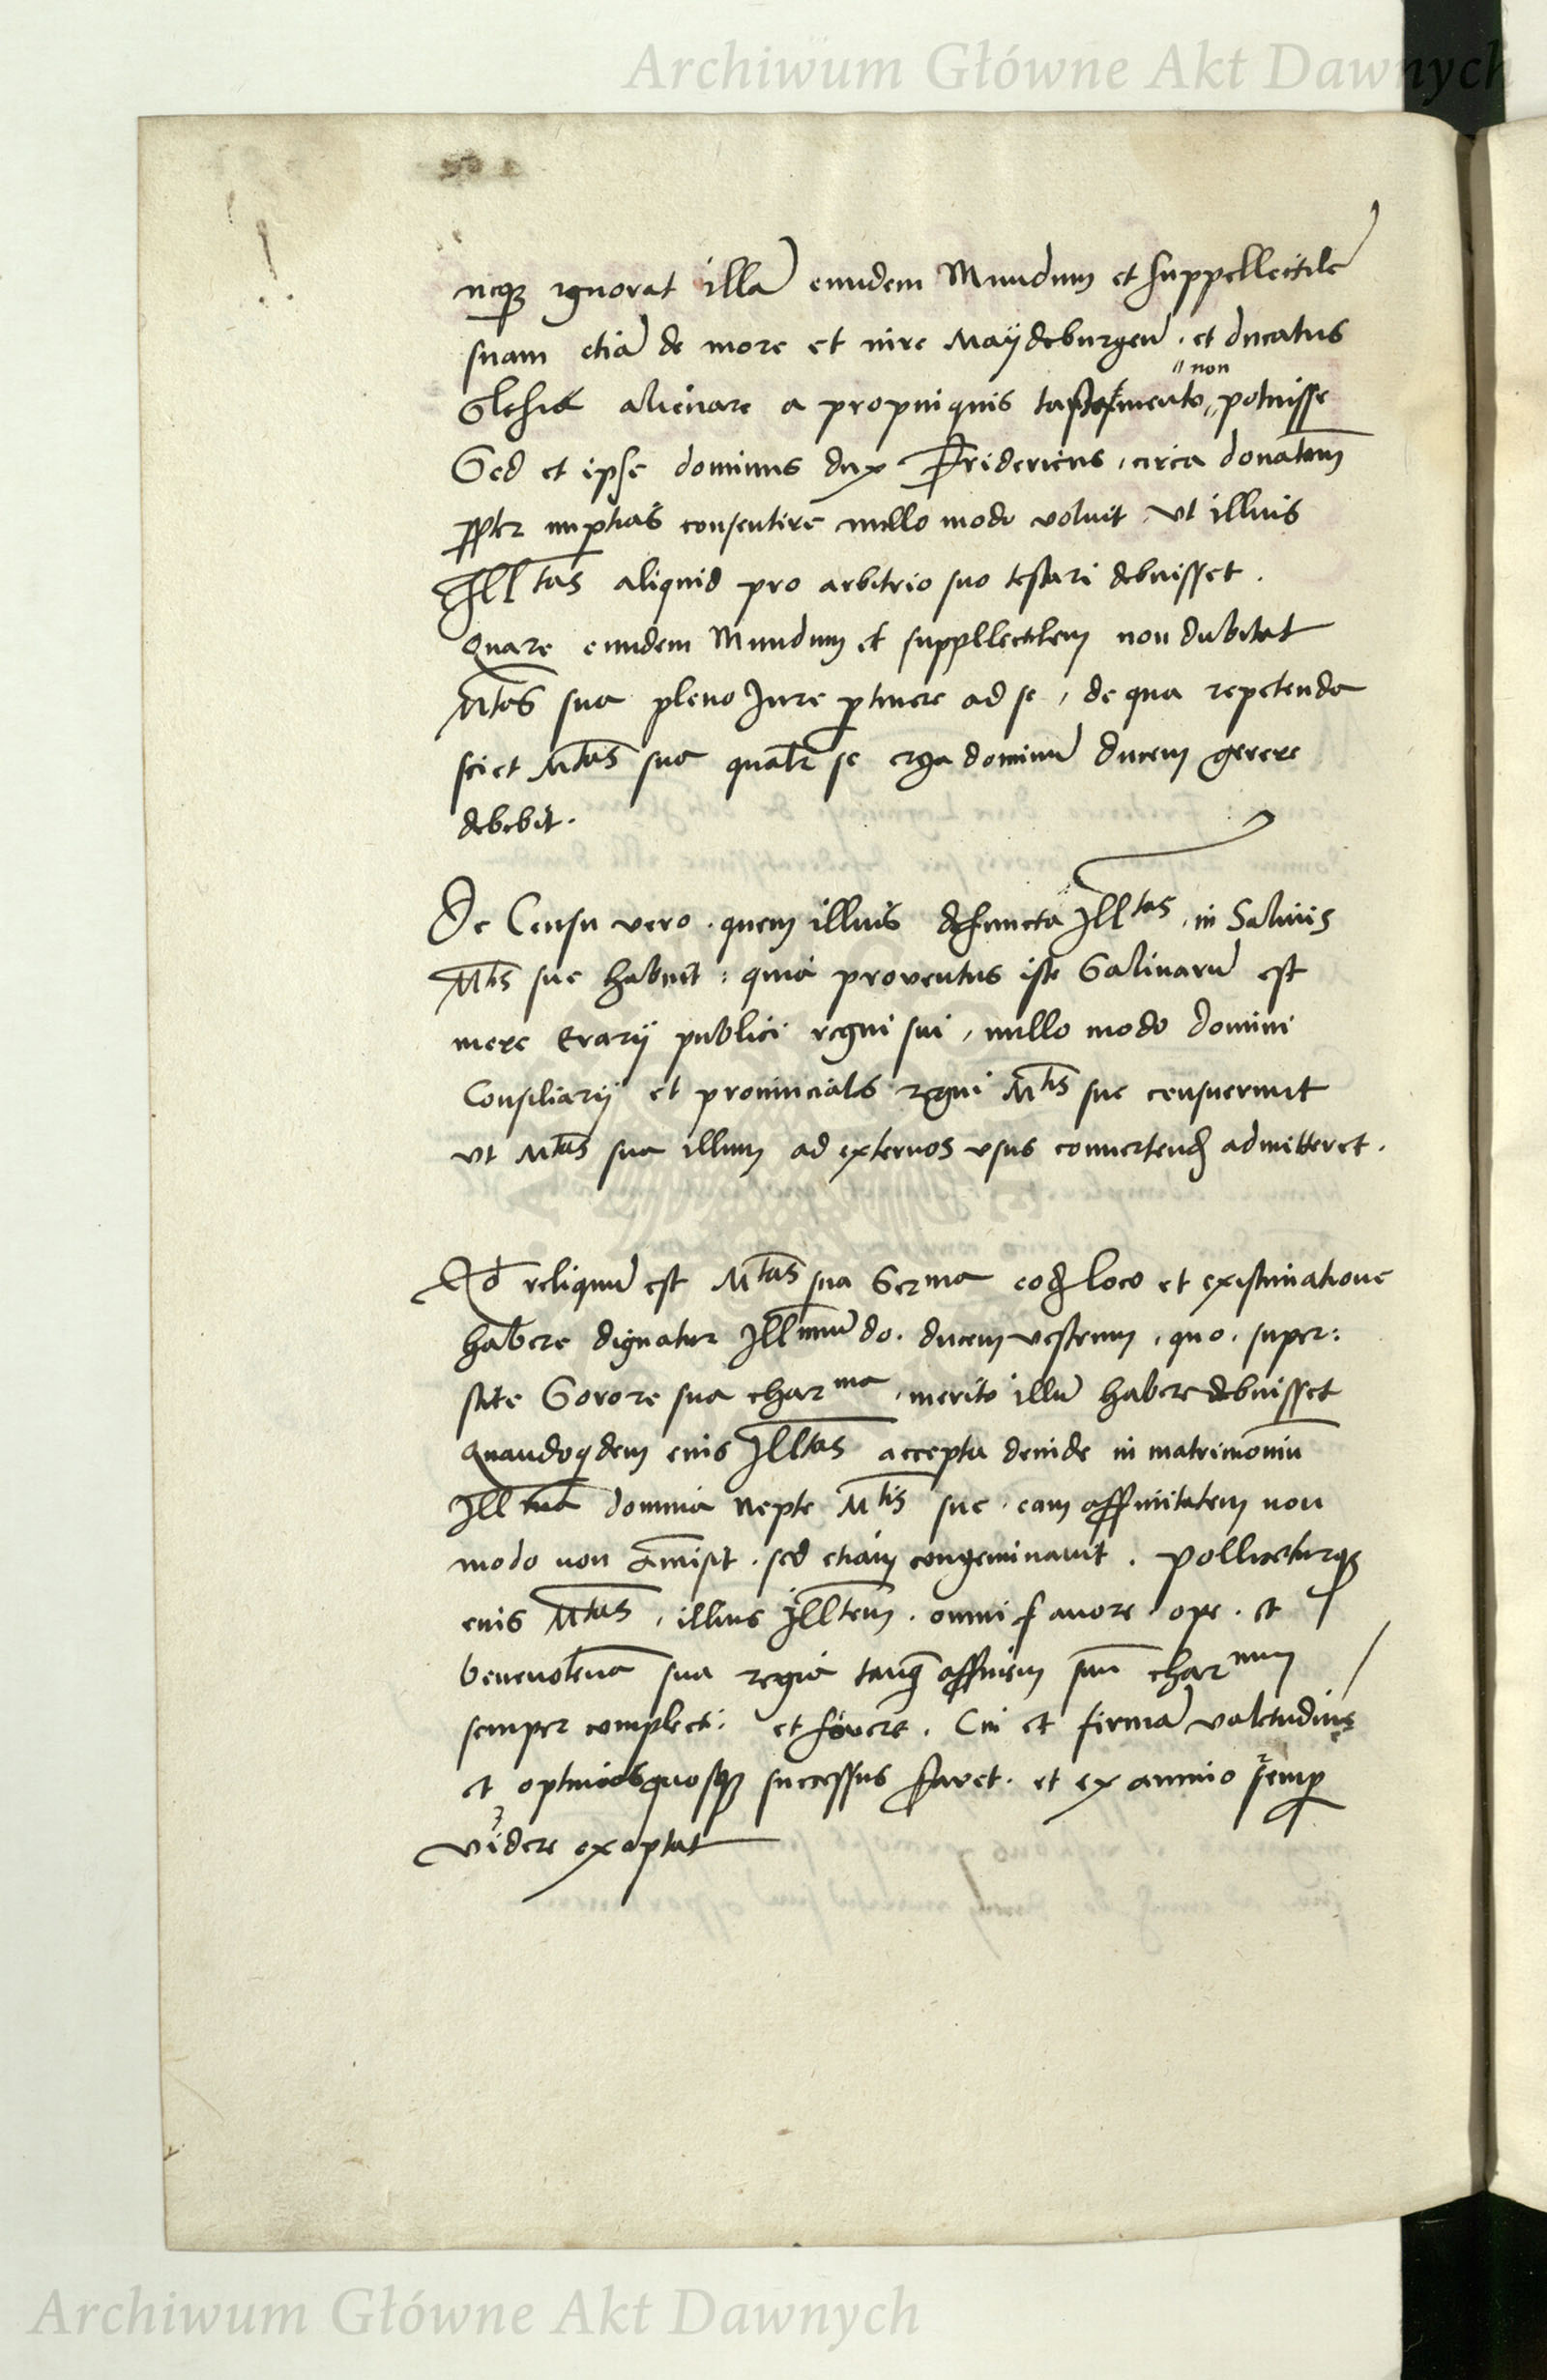 Archiwum Główne Akt Dawnych
neq3 ignorat illā eundem Mundum et suppellectilē
suam etiā de more et iure Maÿdeburgeń. et ducatus
Slesie alienare a propinquis testamento non potuisse
Sed et ipse dominus dux Fridericus, circa donatōm
ppter nuptias consentire nullo modo voluit, vt illius
Illtas aliquid pro arbitrio suo testari debuisset.
Quare eundem Mundum et suppllectilem non dubitat
Mtas sua pleno Jure ptinere ad se, de qua repetenda
sciet Mtas sua qualr se erga dominū ducem gerere
debebit.
De Censu vero. quem illius defuncta Illtas, in Salinis
Mtis sue habuit: quia proventus iste Salinarū est
mere Erarÿ publici regni sui, nullo modo domini
Consiliarÿ et provincials regni Mtis sue censuerunt
vt Mtas sua illum ad externos vsus convertend admitteret.
Qd reliquū est Mtas sua Serma eod loco et existimatione
habere dignatur Illmū do. ducem vestrum, quo. super:
stite Sorore sua charma, merito illū habere debuisset
Quandoqdem eius Illtas accepta deinde in matrimoniū
Illma domina Nepte Mtis sue, eam affinitatem non
modo non amisit. sed etiam congeminavit. Polliceturq3
eius Mtas, illius Illtem. omni favore. ope. et
benevolenā sua regia tanq̄ affinem suū charmum
semper complecti. et fovere. Cui et firmā valetudinę
et optimosquosq3 successus favet. et ex animo semp
videre exoptat
Archiwum Główne Akt Dawnych